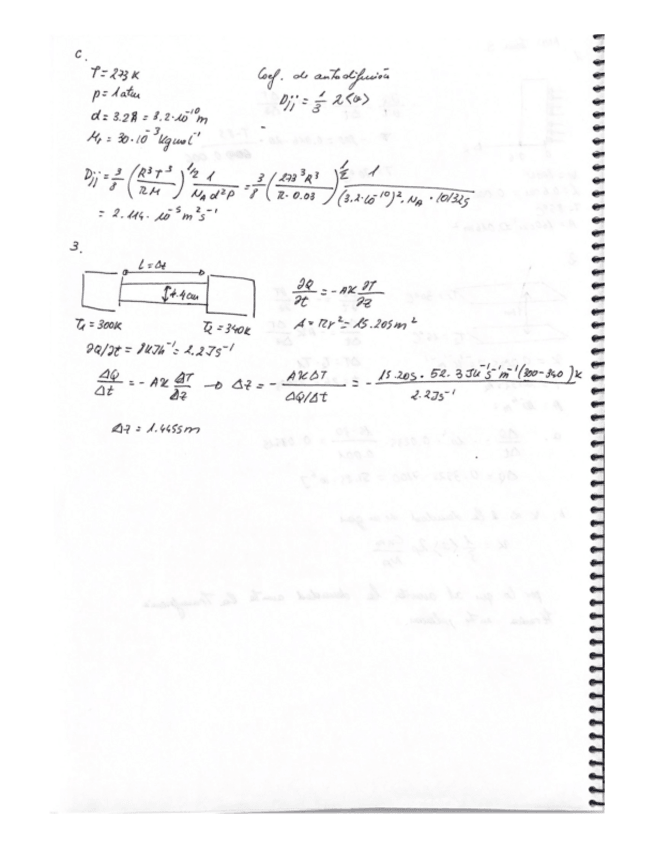 c.
T = 273 K
p = 1 atm
d = 3.2 Å = 3.2·10⁻¹⁰ m
M = 30·10⁻³ kg mol⁻¹
Coef. de autodifusión
Djj = 1/3 λ<v>
Djj = 3/8 (R³T³/πM)^1/2 1/(N_A d² P) = 3/8 (273³R³/π·0.03)^1/2 1/((3.2·10⁻¹⁰)²·N_A·101325)
= 2.114·10⁻⁵ m² s⁻¹
3.
l = Δz
4.4 cm
T₁ = 300K T₂ = 340K
∂Q/∂t = -AK ∂T/∂z
A = πr² = 15.205 m²
∂Q/∂t = 8 kJ h⁻¹ = 2.2 J s⁻¹
ΔQ/Δt = -AK ΔT/Δz → Δz = - AKΔT/(ΔQ/Δt) = - 15.205 · 52.3 J K⁻¹ s⁻¹ m⁻¹ (300-340) K / 2.2 J s⁻¹
Δz = 1.4455 m